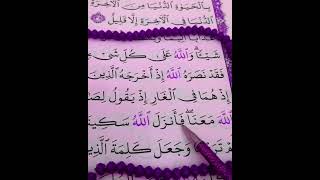 بِٱلْحَيَوٰةِ ٱلدُّنْيَا مِنَ ٱلْأَخِرَةِ
ٱلدُّنْيَا فِى ٱلْأَخِرَةِ إِلَّا قَلِيلٌ
شَيْـًٔا ۗ وَٱللَّهُ عَلَىٰ كُلِّ شَىْ
فَقَدْ نَصَرَهُ ٱللَّهُ إِذْ أَخْرَجَهُ ٱلَّذِينَ
إِذْ هُمَا فِى ٱلْغَارِ إِذْ يَقُولُ لِصَـ
ٱللَّهَ مَعَنَا ۖ فَأَنزَلَ ٱللَّهُ سَكِينَـ
وَجَعَلَ كَلِمَةَ ٱلَّذِيـ